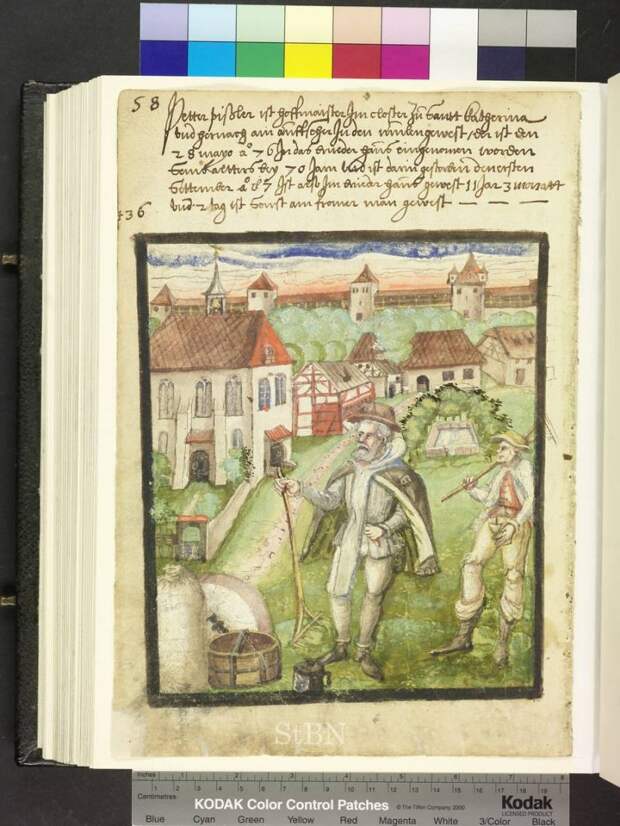 58
Petter pißler ist hoffmaister Im closter zu sannt katherina
vnd hernach am auffseher In den gewest / der ist den
28 mayo a° 76 In das brueder haus eingenomen worden
seins altters bey 70 Jarn vnd ist darin gestorben den ersten
September a° 87 Ist also Im brueder haus gewest 11 Jar 3 monatt
vnd 2 tag ist sonst ain fromer man gewest
136
StBN
Inches 1 2 3 4 5 6 7 8
Centimetres 1 2 3 4 5 6 7 8 9 10 11 12 13 14 15 16 17 18 19
KODAK Color Control Patches © The Tiffen Company, 2000 Kodak
LICENSED PRODUCT
Blue Cyan Green Yellow Red Magenta White 3/Color Black